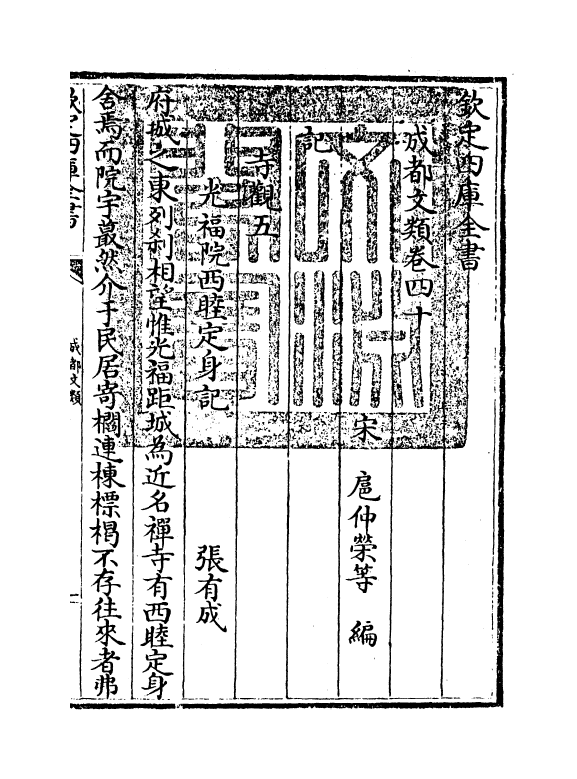 欽定四庫全書
成都文類卷四十
宋 扈仲榮等 編
記
寺觀五
光福院西睦定身記 張有成
府城之東列刹相望惟光福距城為近名禪寺有西睦定身
舍焉而院宇蕞然介于民居寄櫚連棟標榜不存往來者弗
欽定四庫全書
成都文類
一